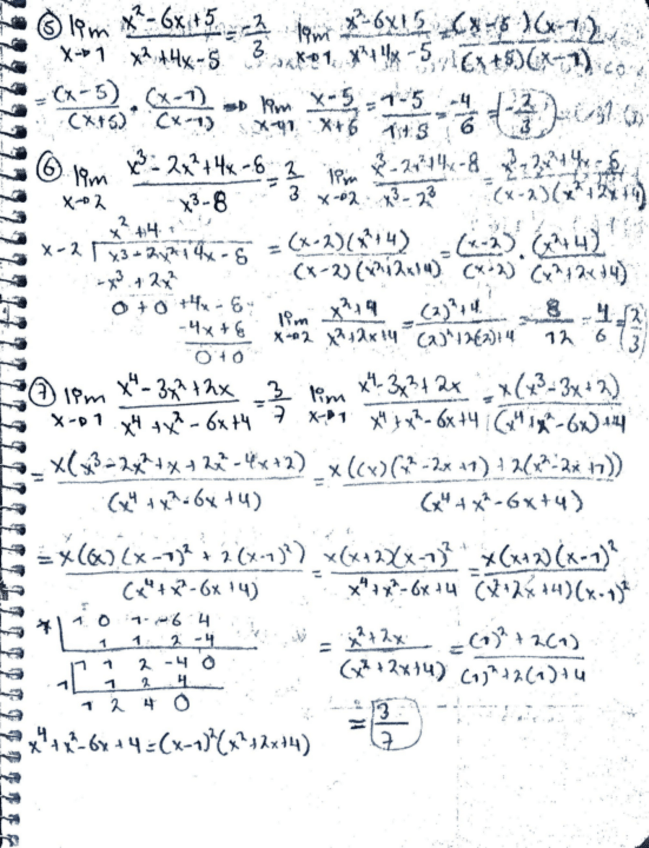 ⑤ lim x→1 (x²-6x+5)/(x²+4x-5) = -2/3   lim x→1 (x²-6x+5)/(x²+4x-5) = ((x-5)(x-1))/((x+5)(x-1))
= (x-5)/(x+5) · (x-1)/(x-1) ⇒ lim x→1 (x-5)/(x+5) = (1-5)/(1+5) = -4/6 = -2/3
⑥ lim x→2 (x³-2x²+4x-8)/(x³-8) = 2/3   lim x→2 (x³-2x²+4x-8)/(x³-2³) = (x³-2x²+4x-8)/((x-2)(x²+2x+4))
x²+4
x-2 | x³-2x²+4x-8   = ((x-2)(x²+4))/((x-2)(x²+2x+4)) = (x-2)/(x-2) · (x²+4)/(x²+2x+4)
-x³+2x²
0+0+4x-8
-4x+8   lim x→2 (x²+4)/(x²+2x+4) = ((2)²+4)/((2)²+2(2)+4) = 8/12 = 4/6 = 2/3
0+0
⑦ lim x→1 (x⁴-3x²+2x)/(x⁴+x²-6x+4) = 3/7   lim x→1 (x⁴-3x²+2x)/(x⁴+x²-6x+4) = x(x³-3x+2)/((x⁴+x²-6x)+4)
= x(x³-2x²+x+2x²-4x+2)/(x⁴+x²-6x+4) = x((x)(x²-2x+1)+2(x²-2x+1))/(x⁴+x²-6x+4)
= x((x)(x-1)²+2(x-1)²)/(x⁴+x²-6x+4) = x(x+2)(x-1)²/(x⁴+x²-6x+4) = x(x+2)(x-1)²/((x²+2x+4)(x-1)²)
1 | 1 0 1 -6 4
1 1 2 -4   = (x²+2x)/(x²+2x+4) = ((1)²+2(1))/((1)²+2(1)+4)
1 | 1 1 2 -4 0
1 2 4
1 2 4 0   = 3/7
x⁴+x²-6x+4=(x-1)²(x²+2x+4)